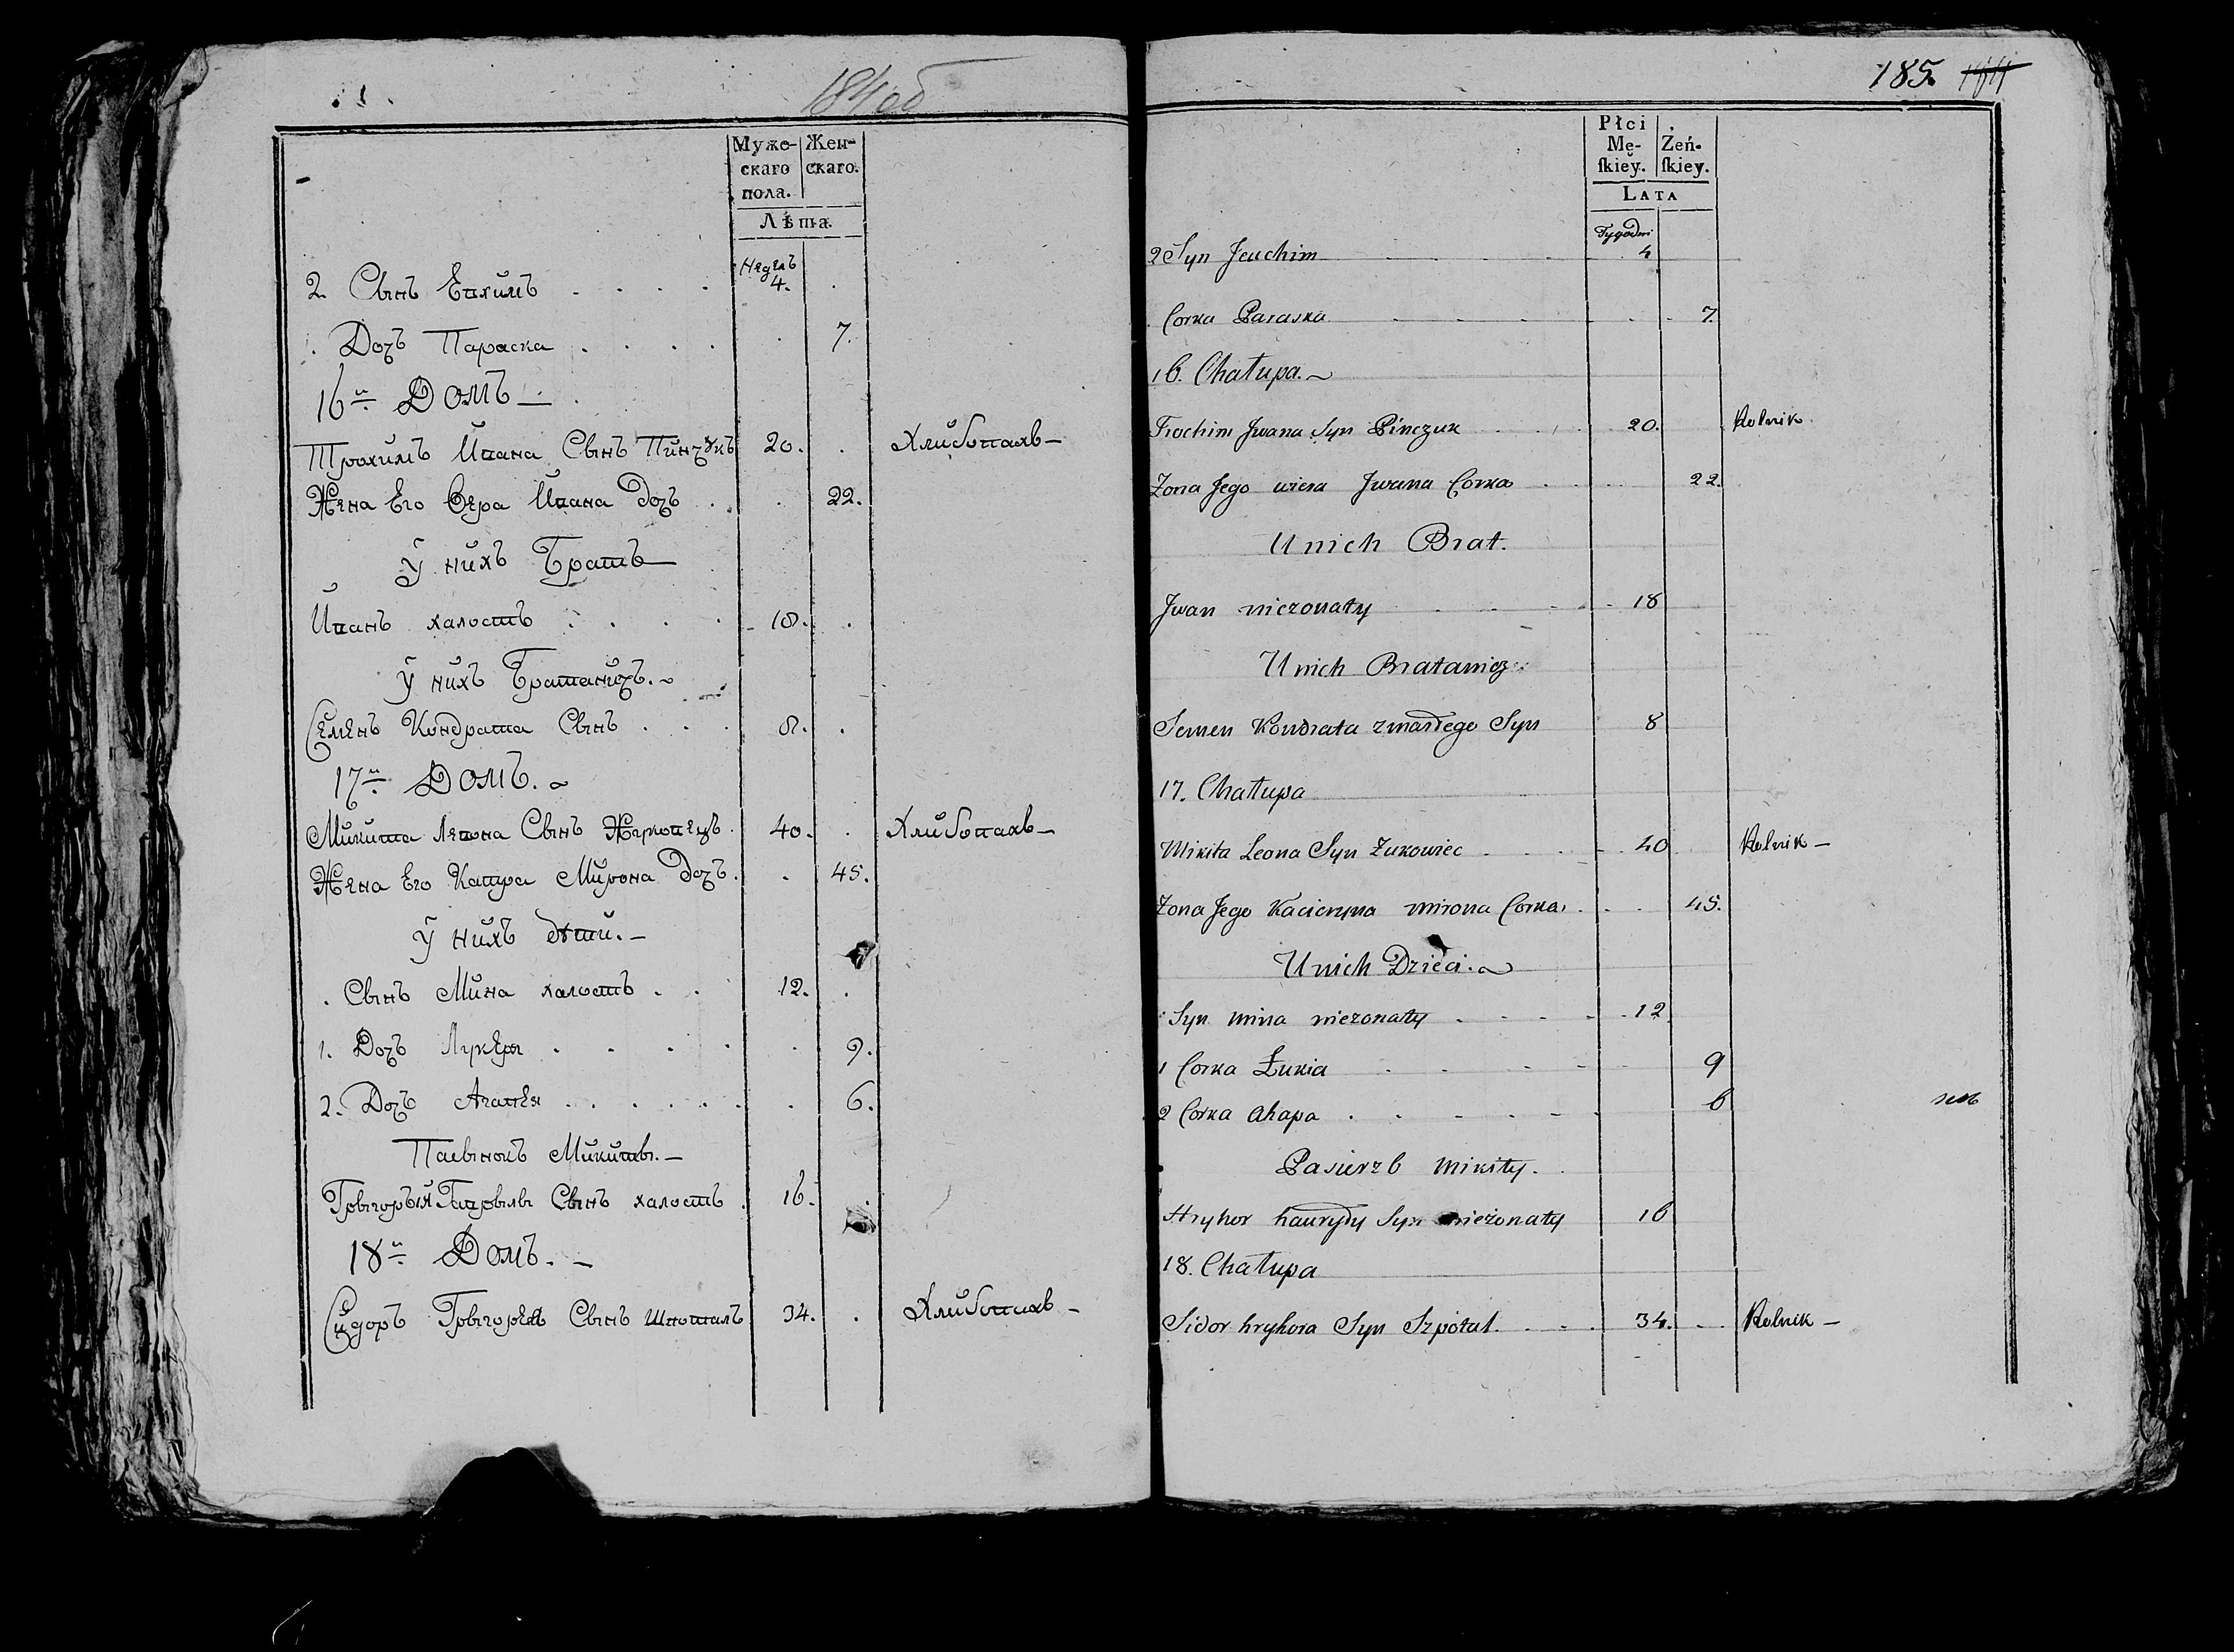 184об
Муже-
скаго
пола.
Жен-
скаго.
Лѣта.
Недель
2. Сынъ Евхимъ . . . . 4. .
. Дочъ Параска . . . . . 7.
16й Домъ
Трохимъ Ивана Сынъ Пинчукъ 20. . Хлибопахъ
Жена Его Вера Ивана Дочъ . . . 22.
У нихъ Братъ
Иванъ халостъ . . . . 18. .
У нихъ Братаничъ.
Семенъ Кондрата Сынъ . . . 8. .
17й Домъ.
Микита Левона Сынъ 40. . Хлибопахъ
Жена Его Катра Мирона Дочъ. . 45.
У нихъ дѣти.
. Сынъ Мина халостъ . . 12. .
1. Дочъ . . . . . . 9.
2. Дочъ . . . . . . . 6.
Пасынокъ Микиты.
Сынъ халостъ . 16. .
18й Домъ.
Сидоръ Сынъ Шпоталъ 34. . Хлибопахъ
185.
Płci
Mę-
ſkiey.
Żeń-
ſkiey.
LATA
Tygodni
2 Syn Jeuchim . . . . 4
Corka Paraska . . . . . 7.
16. Chałupa.
Trochim Jwana Syn Pinczuk . . . 20. Rolnik.
Zona Jego wiera Jwana Corka . . . . 22.
U nich Brat.
Jwan niezonaty . . . . 18
U nich Bratanicz
Semen Kondrata zmarłego Syn 8
17. Chałupa
Mikita Leona Syn Zukowiec . . . . 40 Rolnik
Zona Jego Kacieryna mirona Corka . . . 45.
U nich Dzieci.
Syn mina niezonaty . . . . . 12
1 Corka Łukia . . . . . 9
2 Corka Ahapa . . . . . . 6
Pasierzb Mikity.
Hryhor hauryły Syn nieżonaty 16
18. Chałupa
Sidor hryhora Syn Szpotal. . . . 34. . . Rolnik